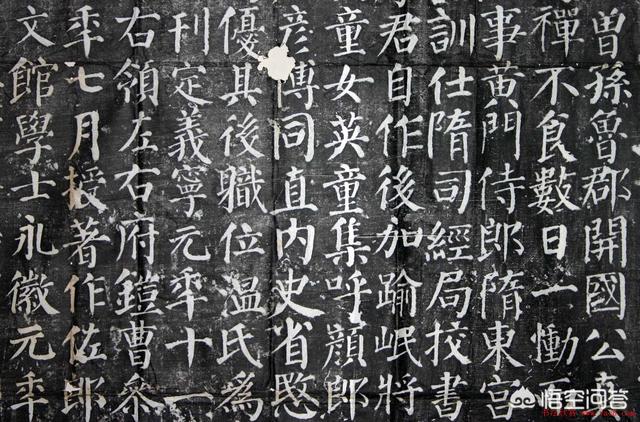 曾孫魯郡開國公真
禪不食數日一慟而
事黃門侍郎隋東宮
訓仕隋司經局挍書
君自作後加踰岷將
童女英童集呼顏郎
彦博同直內史省愍
優其後職位温氏為
刊定義寧元秊十一
右領左右府鎧曹叅
秊七月授著作佐郎
文館學士永徽元秊
悟空问答